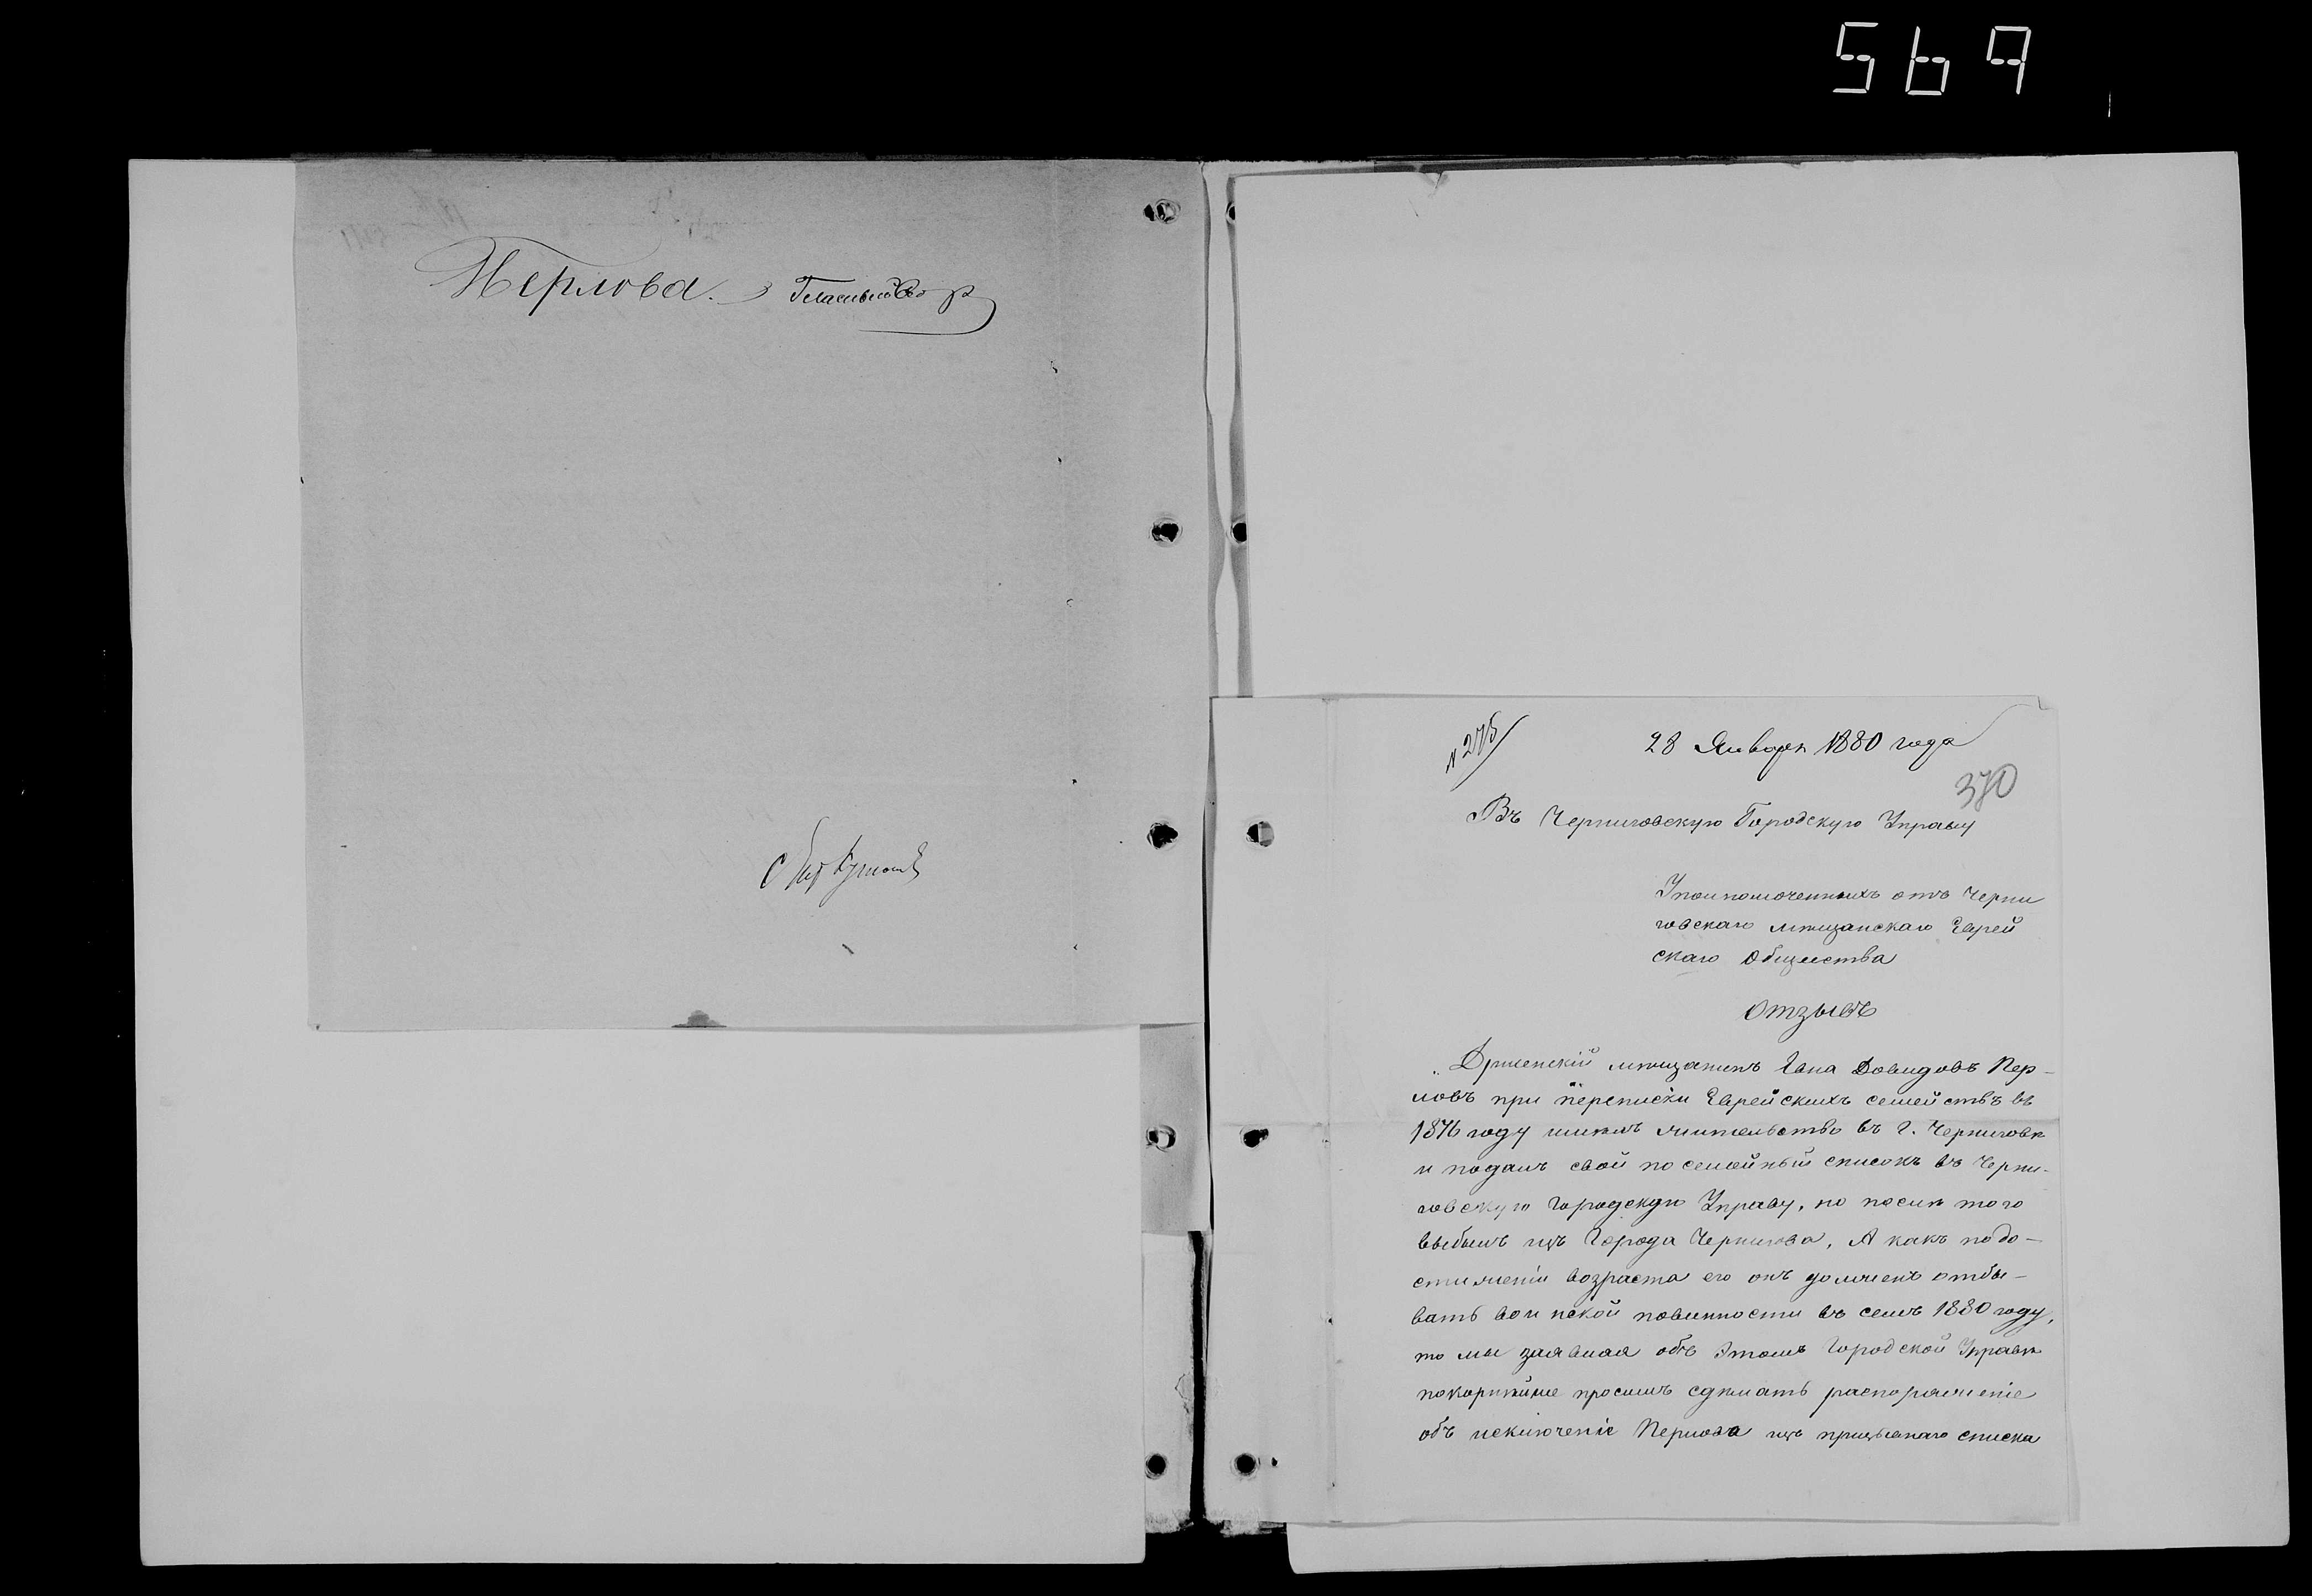 569
Перлова.
28 Января 1880 года
370
Въ Черниговскую Городскую Управу
Уполномоченныхъ отъ Черни
говскаго мѣщанскаго Еврей
скаго Общества
Отзывъ
мѣщанинъ Довидовъ Пер-
ловъ при переписки Еврейскихъ семействъ въ
1876 году имѣлъ жительство въ г. Черниговѣ
и подалъ свой посемейный списокъ въ Черни-
говскую Городскую Управу, но послѣ того
выбылъ изъ Города Чернигова, А какъ по до-
стиженіи возраста его онъ долженъ отбы-
вать воинской повинности въ семъ 1880 году,
то мы заявляя объ этомъ Городской Управѣ
покорнѣйше просимъ сдѣлать распоряженіе
объ исключеніе Перлова изъ призывнаго списка